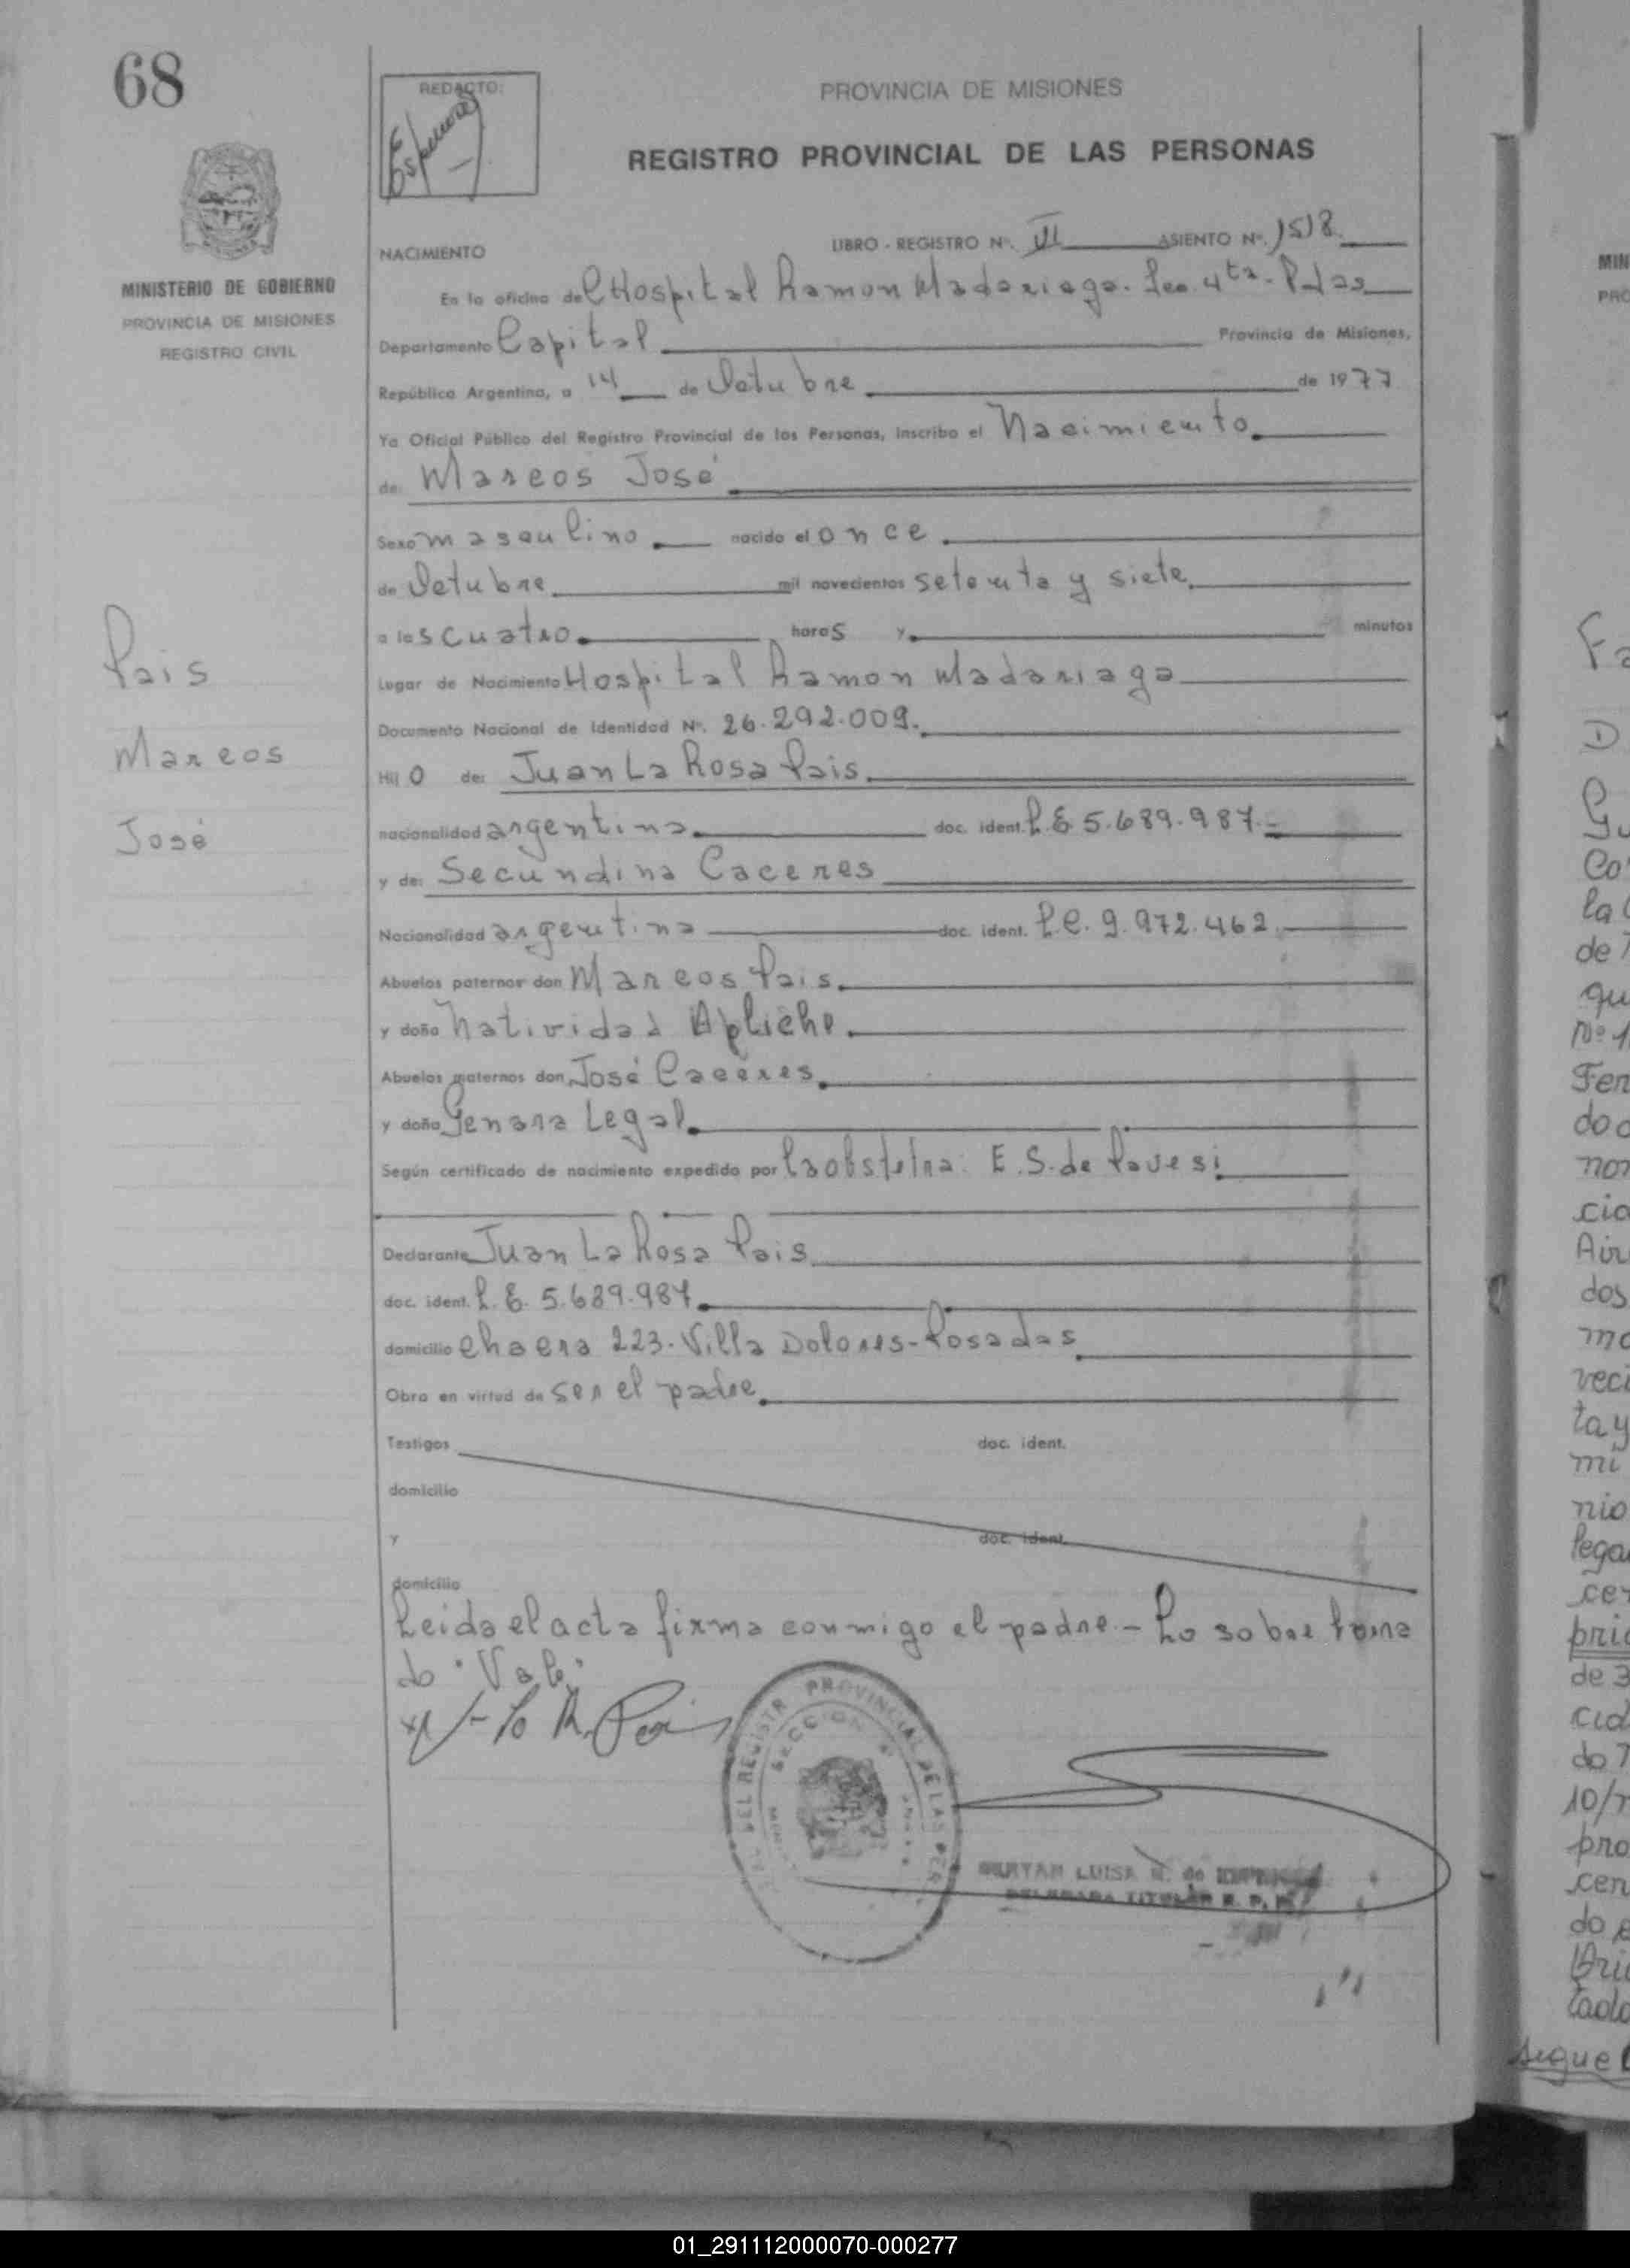 68
REDACTO:
PROVINCIA DE MISIONES
REGISTRO PROVINCIAL DE LAS PERSONAS
MINISTERIO DE GOBIERNO
PROVINCIA DE MISIONES
REGISTRO CIVIL
NACIMIENTO
LIBRO - REGISTRO Nº. III ASIENTO Nº. 1518.
En la oficina del Hospital Ramon Madariaga. Sec. 4ta - Pdas
Departamento Capital Provincia de Misiones,
República Argentina, a 14 de Octubre de 1977
Yo Oficial Público del Registro Provincial de las Personas, inscribo el Nacimiento
de: Marcos José
Sexo masculino nacido el once
de Octubre mil novecientos setenta y siete
a las cuatro horas y minutos
Lugar de Nacimiento Hospital Ramon Madariaga
Documento Nacional de Identidad Nº. 26.292.009.
Hijo de: Juan La Rosa Pais
nacionalidad argentina doc. ident. L.E. 5.689.987.
y de: Secundina Caceres
Nacionalidad argentina doc. ident. L.C. 9.972.462
Abuelos paternos don Marcos Pais
y doña Natividad Apliche
Abuelos maternos don José Caceres
y doña Genara Legal
Según certificado de nacimiento expedido por la obstetra: E. S. de Pavesi
Declarante Juan La Rosa Pais
doc. ident. L.E. 5.689.987
domicilio chacra 223. Villa Dolores - Posadas
Obra en virtud de ser el padre
Testigos doc. ident.
domicilio
y doc. ident.
domicilio
Leida el acta firma conmigo el padre. - Lo sobre
do "Vale"
Pais
Marcos
José
DEL REGISTR PROVINCIAL DE LAS PER
SECCION
LUISA
DELEGADA TITULAR R. P. P.
Fa
D
Gu
Co
la
de
qu
Nº 1
Fer
do
nor
cio
Air
dos
mo
veci
ta y
mi
nio
lega
cer
pri
de 3
cid
do 7
10/
pro
cen
do
Ari
tado
sigue
MIN
01_291112000070-000277